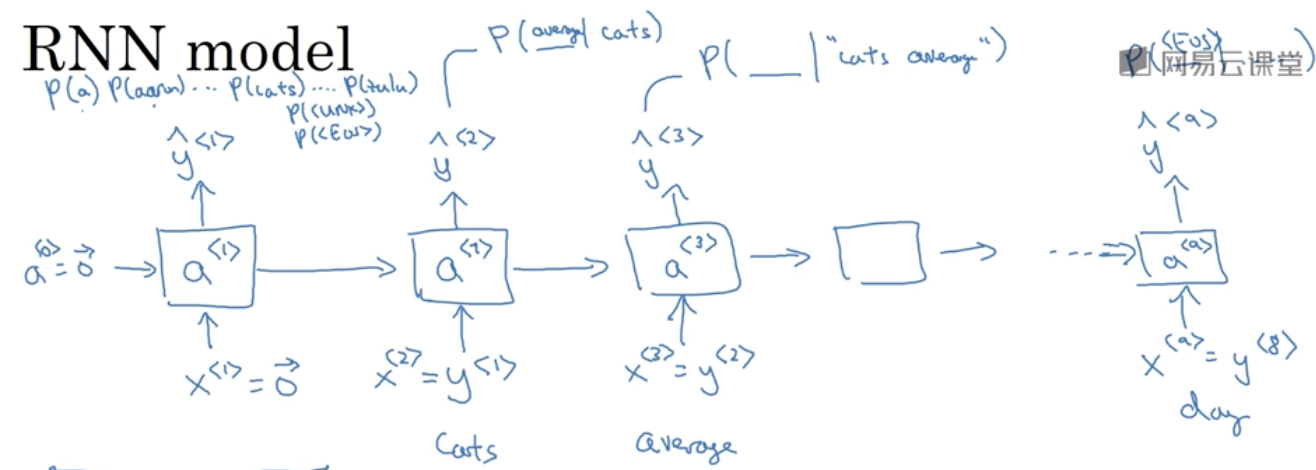 RNN model
P(a) P(aaron) ... P(cats) .... P(zulu)
P(<UNK>)
P(<EOS>)
P(average | cats)
P(__ | "cats average")
P(<EOS> | ....)
网易云课堂
ŷ<1> ŷ<2> ŷ<3> ŷ<9>
a<0> = 0⃗ a<1> a<2> a<3> ---- a<9>
x<1> = 0⃗ x<2> = y<1> x<3> = y<2> x<9> = y<8>
Cats average day